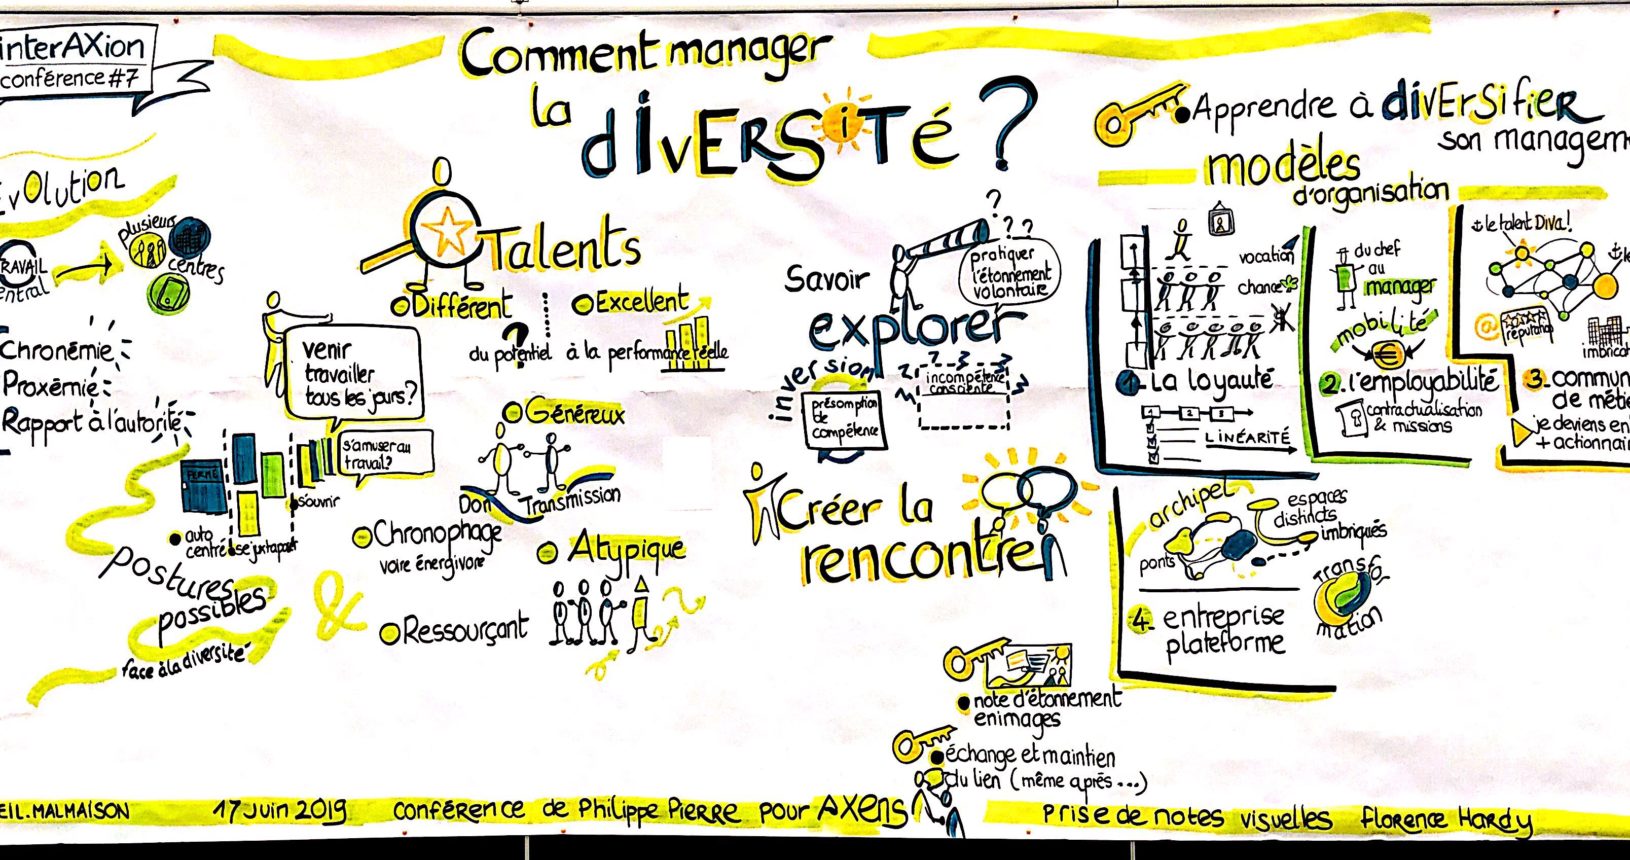 interAXion
conférence #7
Comment manager
la
diVERSiTé ?
évOlution
TRAVAIL
central
plusieurs
centres
Chronémie
Proxémie
Rapport à l'autorité
venir
travailler
tous les jours?
s'amuser au
travail?
FERMÉ
auto
centré
se juxtapose
s'ouvrir
postures
possibles
face à la diversité
&
Talents
Différent
Excellent
?
du potentiel à la performance réelle
Généreux
Don
Transmission
Chronophage
voire énergivore
Atypique
Ressourçant
Savoir
explorer
? ? ?
pratiquer
l'étonnement
volontaire
inversion
présomption
de
compétence
incompétence
consciente
Créer la
rencontre
note d'étonnement
en images
échange et maintien
du lien (même après...)
Apprendre à diVErSifiER
son managem
modèles
d'organisation
vocation
chance
1. La loyauté
1 2 3
LINÉARITÉ
du chef
au
manager
mobilité
2. l'employabilité
contractualisation
& missions
le talent Diva!
@
réputation
imbricat
3. commun
de métie
je deviens en
+ actionnai
archipel
espaces
distincts
imbriqués
ponts
4. entreprise
plateforme
TRANSFOR
mation
EIL.MALMAISON
17 Juin 2019
conférence de Philippe Pierre pour AXENS
Prise de notes visuelles Florence Hardy